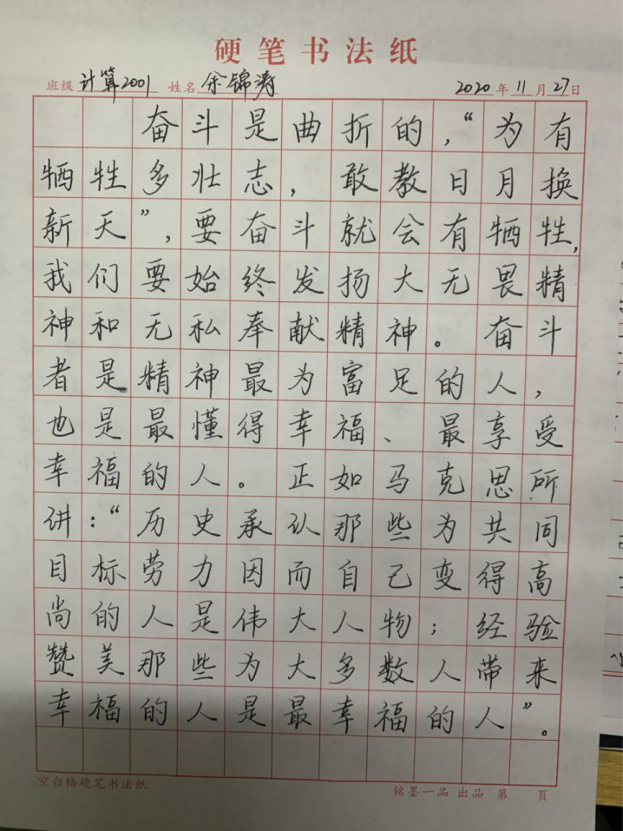 硬笔书法纸
班级 计算2001 姓名 余锦涛 2020年11月27日
奋斗是曲折的，“为有
牺牲多壮志，敢教日月换
新天”，要奋斗就会有牺牲，
我们要始终发扬大无畏精
神和无私奉献精神。奋斗
者是精神最为富足的人，
也是最懂得幸福、最享受
幸福的人。正如马克思所
讲：“历史承认那些为共同
目标劳力因而自己变得高
尚的人是伟大人物；经验
赞美那些为大多数人带来
幸福的人是最幸福的人”。
空白格硬笔书法纸 铭墨一品 出品 第 页